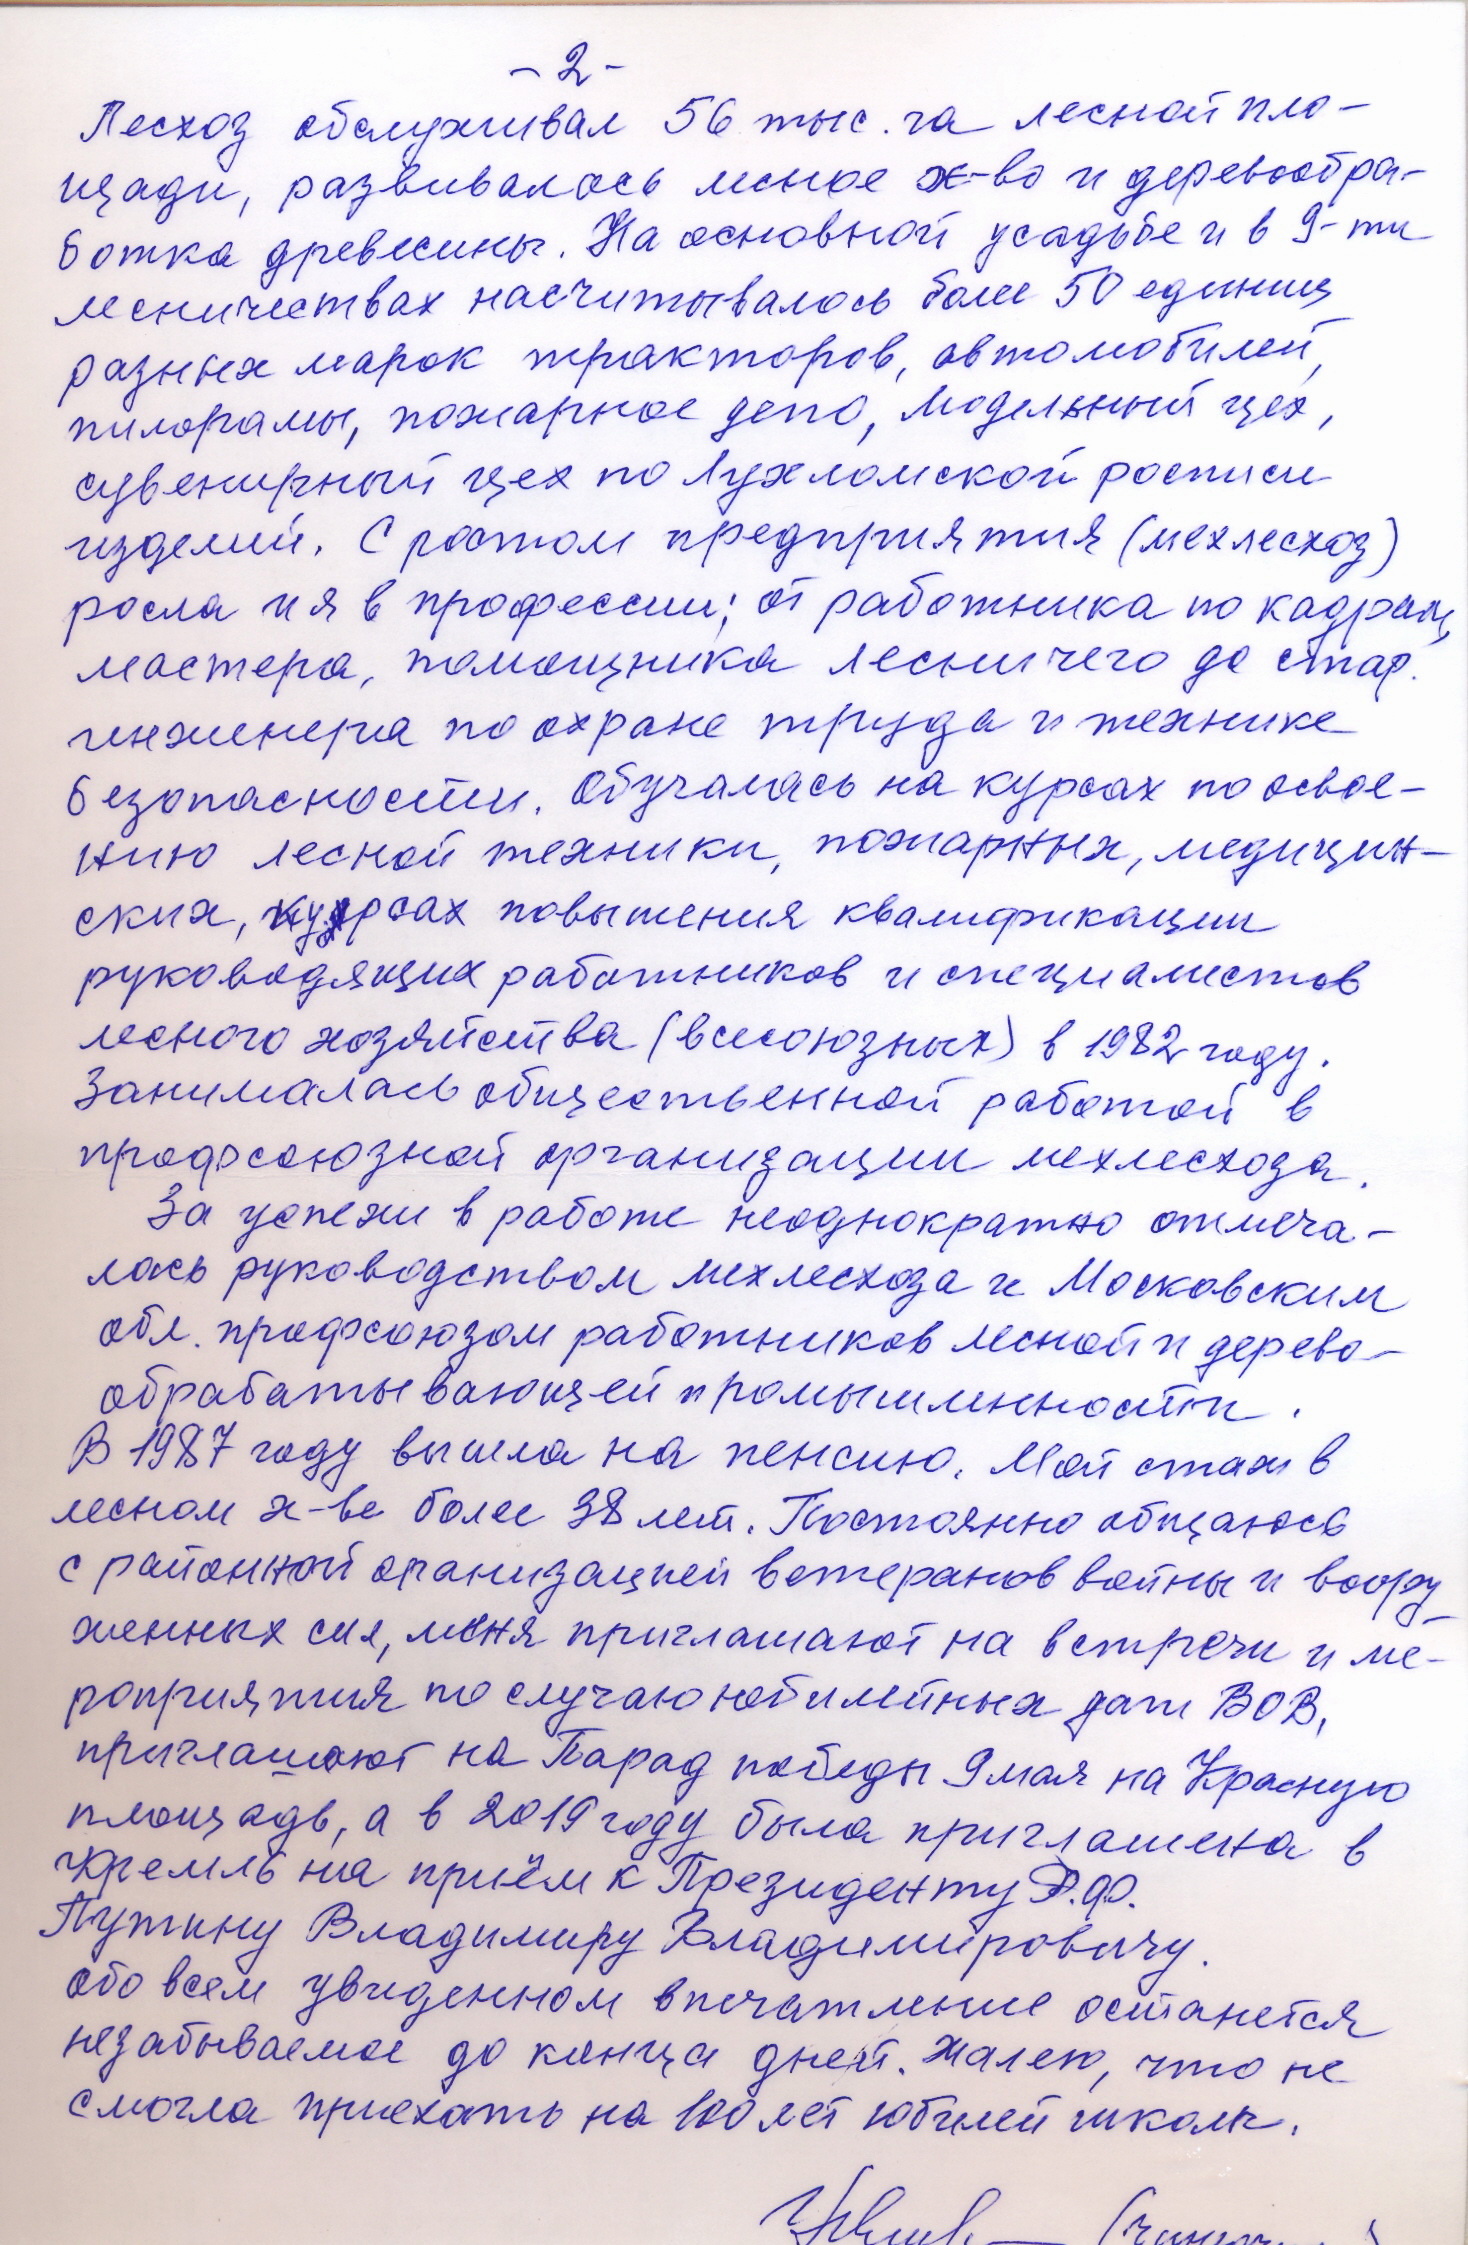 - 2 -
Лесхоз обслуживал 56 тыс. га лесной пло-
щади, развивалось лесное х-во и деревообра-
ботка древесины. На основной усадьбе и в 9-ти
лесничествах насчитывалось более 50 единиц
разных марок тракторов, автомобилей,
пилорамы, пожарное депо, модельный цех,
сувенирный цех по росписи
изделий. С ростом предприятия (мехлесхоз)
росла и я в профессии; от работника по кадрам,
мастера, помощника лесничего до стар.
инженера по охране труда и технике
безопасности. Обучалась на курсах по освое-
нию лесной техники, пожарных, медицин-
ских, курсах повышения квалификации
руководящих работников и специалистов
лесного хозяйства (всесоюзных) в 1982 году.
Занималась общественной работой в
профсоюзной организации мехлесхоза.
За успехи в работе неоднократно отмеча-
лась руководством мехлесхоза и Московским
обл. профсоюзом работников лесной и дерево-
обрабатывающей промышленности.
В 1987 году вышла на пенсию. Мой стаж в
лесном х-ве более 38 лет. Постоянно общаюсь
с районной организацией ветеранов войны и воору-
женных сил, меня приглашают на встречи и ме-
роприятия по случаю юбилейных дат ВОВ,
приглашают на Парад победы 9 мая на Красную
площадь, а в 2019 году была приглашена в
Кремль на приём к Президенту Р.Ф.
Путину Владимиру Владимировичу.
Обо всем увиденном впечатление останется
незабываемое до конца дней. Жалею, что не
смогла приехать на 100 лет юбилей школы.